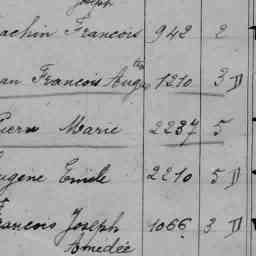 Joseph
achin François 942 2
an François Augte 1210 3 D
Pierre Marie 2237 5
Eugène Emile 2210 5 D
François Joseph 1066 3 D
Amédée